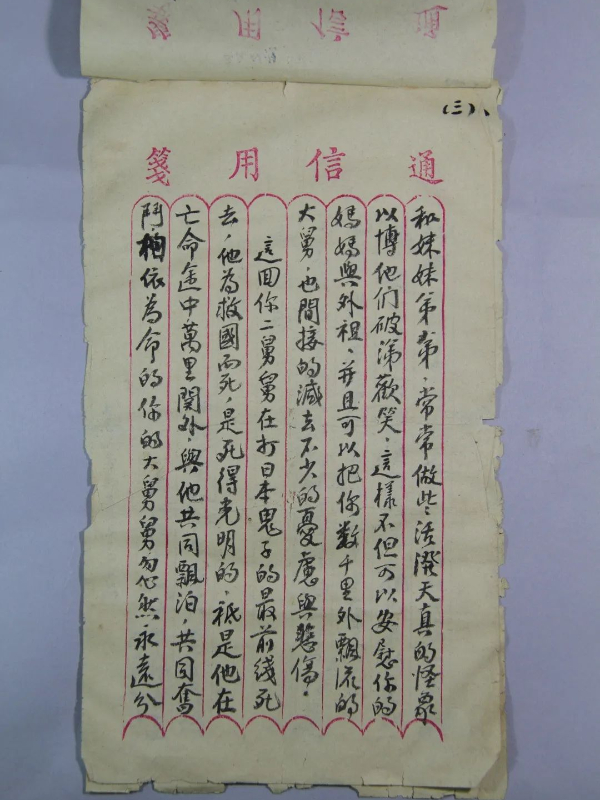 (三)、
通信用箋
和妹妹弟弟，常常做些活潑天真的怪象
以博他们破涕歡笑，這樣不但可以安慰你的
媽媽與外祖，并且可以把你数千里外飄流的
大舅，也間接的减去不少的憂慮與悲傷。
這回你二舅舅在打日本鬼子的最前綫死
去，他為救國而死，是死得光明的，祗是他在
亡命途中萬里関外，與他共同飄泊，共同奮
鬥，相依為命的你的大舅舅勿忽然永遠分
通信用箋